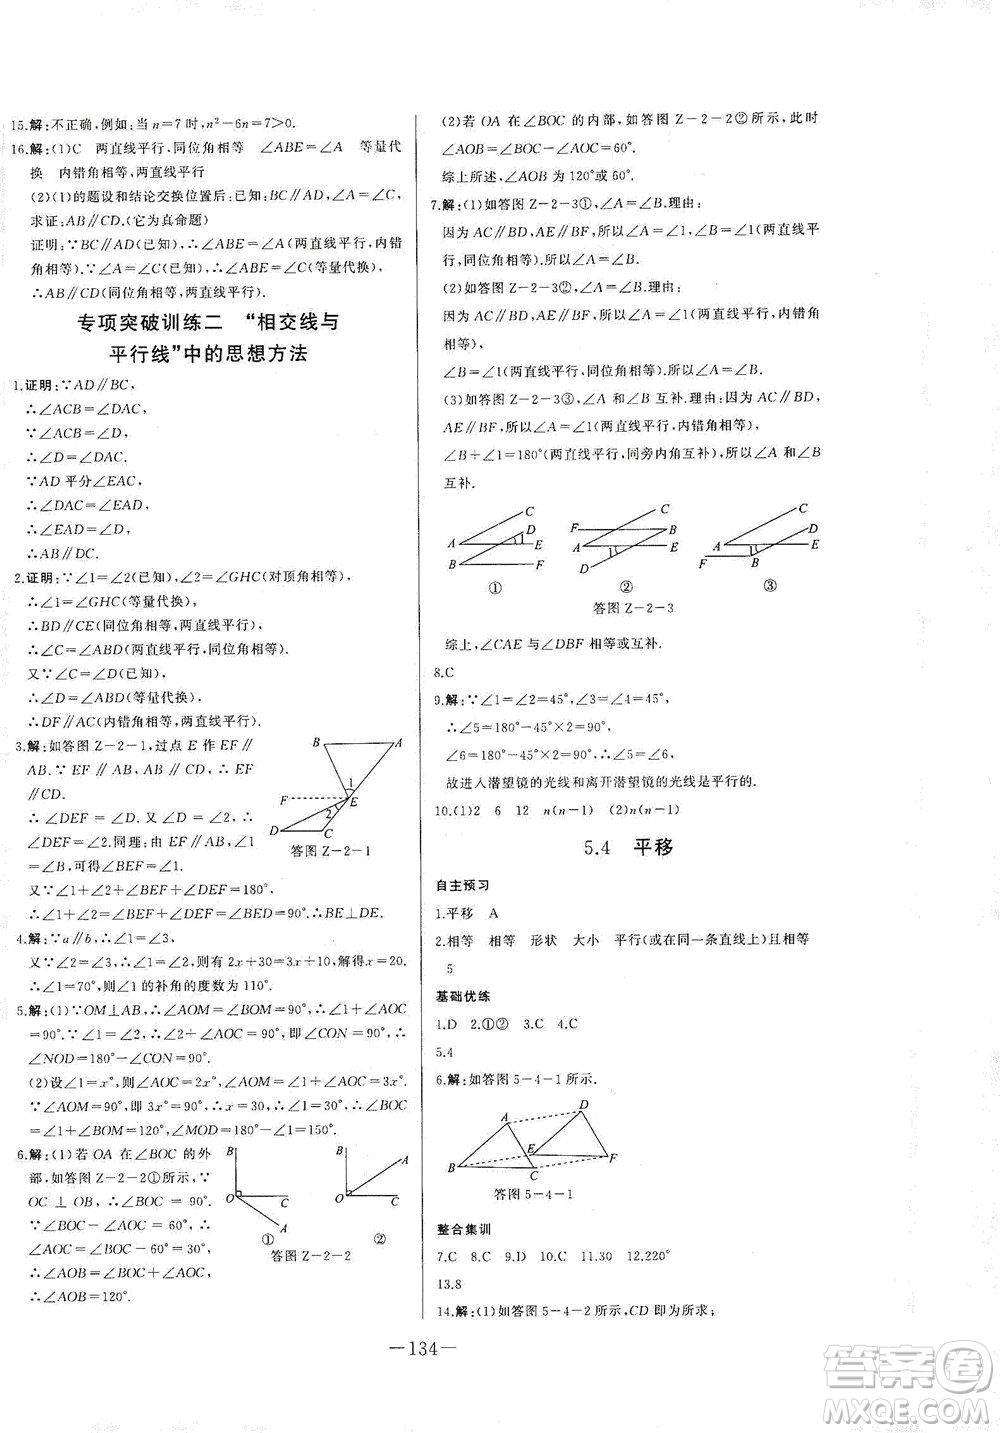 15.解:不正确,例如:当 n=7 时,n²-6n=7>0.
16.解:(1)C 两直线平行,同位角相等 ∠ABE=∠A 等量代
换 内错角相等,两直线平行
(2)(1)的题设和结论交换位置后:已知:BC∥AD,∠A=∠C,
求证:AB∥CD.(它为真命题)
证明:∵BC∥AD(已知),∴∠ABE=∠A(两直线平行,内错
角相等).∵∠A=∠C(已知),∴∠ABE=∠C(等量代换),
∴AB∥CD(同位角相等,两直线平行).
专项突破训练二 “相交线与
平行线”中的思想方法
1.证明:∵AD∥BC,
∴∠ACB=∠DAC,
∵∠ACB=∠D,
∴∠D=∠DAC.
∵AD 平分∠EAC,
∴∠DAC=∠EAD,
∴∠EAD=∠D,
∴AB∥DC.
2.证明:∵∠1=∠2(已知),∠2=∠GHC(对顶角相等),
∴∠1=∠GHC(等量代换),
∴BD∥CE(同位角相等,两直线平行),
∴∠C=∠ABD(两直线平行,同位角相等).
又∵∠C=∠D(已知),
∴∠D=∠ABD(等量代换),
∴DF∥AC(内错角相等,两直线平行).
3.解:如答图 Z-2-1,过点 E 作 EF∥
AB.∵EF∥AB,AB∥CD,∴EF∥
CD.
∴∠DEF=∠D. 又 ∵∠D=∠2,
∴∠DEF=∠2.同理:由 EF∥AB,∠1=
∠B,可得∠BEF=∠1.
又∵∠1+∠2+∠BEF+∠DEF=180°,
∴∠1+∠2=∠BEF+∠DEF=∠BED=90°.∴BE⊥DE.
B A F 1 2 E D C
答图 Z-2-1
4.解:∵a∥b,∴∠1=∠3,
又∵∠2+∠3=180°,∴∠1+∠2=180°,则有 2x+30+3x+50=180,解得 x=20.
∴∠1=70°,所以∠1 的补角的度数为 110°.
5.解:(1)∵OM⊥AB,∴∠AOM=∠BOM=90°,∴∠1+∠AOC
=90°.∵∠1=∠2,∴∠2+∠AOC=90°,即∠CON=90°,∴
∠NOD=180°-∠CON=90°.
(2)设∠1=x°,则∠AOC=2x°,∴∠AOM=∠1+∠AOC=3x°.
∵∠AOM=90°,即 3x°=90°,∴x=30,∴∠1=30°,∴∠BOC
=∠1+∠BOM=120°,∠MOD=180°-∠1=150°.
6.解:(1)若 OA 在∠BOC 的外
部,如答图 Z-2-2①所示,∵
OC ⊥ OB,∴∠BOC=90°.
∵∠BOC-∠AOC=60°,∴
∠AOC=∠BOC-60°=30°.
∴∠AOB=∠BOC+∠AOC,
∴∠AOB=120°.
B O C A
①
B A O C
②
答图 Z-2-2
(2)若 OA 在∠BOC 的内部,如答图 Z-2-2②所示,此时
∠AOB=∠BOC-∠AOC=60°.
综上所述,∠AOB 为 120°或 60°.
7.解:(1)如答图 Z-2-3①,∠A=∠B.理由:
因为 AC∥BD,AE∥BF,所以∠A=∠1,∠B=∠1(两直线平
行,同位角相等).所以∠A=∠B.
(2)如答图 Z-2-3②,∠A=∠B.理由:
因为 AC∥BD,AE∥BF,所以∠A=∠1(两直线平行,同位角相等),
∠B=∠1(两直线平行,内错角相等),所以∠A=∠B.
(3)如答图 Z-2-3③,∠A 和∠B 互补.理由:因为 AC∥BD,
AE∥BF,所以∠A=∠1(两直线平行,同位角相等),
∠B+∠1=180°(两直线平行,同旁内角互补),所以∠A 和∠B
互补.
C D A 1 E B F
①
C F B A 1 E D
②
C D A E 1 F B
③
答图 Z-2-3
综上,∠CAE 与∠DBF 相等或互补.
8.C
9.解:∵∠1=∠2=45°,∠3=∠4=45°,
∴∠5=180°-45°×2=90°,
∠6=180°-45°×2=90°,∴∠5=∠6.
故进入潜望镜的光线和离开潜望镜的光线是平行的.
10.(1)2 6 12 n(n-1) (2)n(n-1)
5.4 平移
自主预习
1.平移 A
2.相等 相等 形状 大小 平行(或在同一条直线上)且相等
5
基础优练
1.D 2.①② 3.C 4.C
5.4
6.解:如答图 5-4-1 所示.
A D B E C F
答图 5-4-1
整合集训
7.C 8.C 9.D 10.C 11.30 12.220°
13.8
14.解:(1)如答图 5-4-2 所示,CD 即为所求;
—134—
答案圈
MXQE.COM